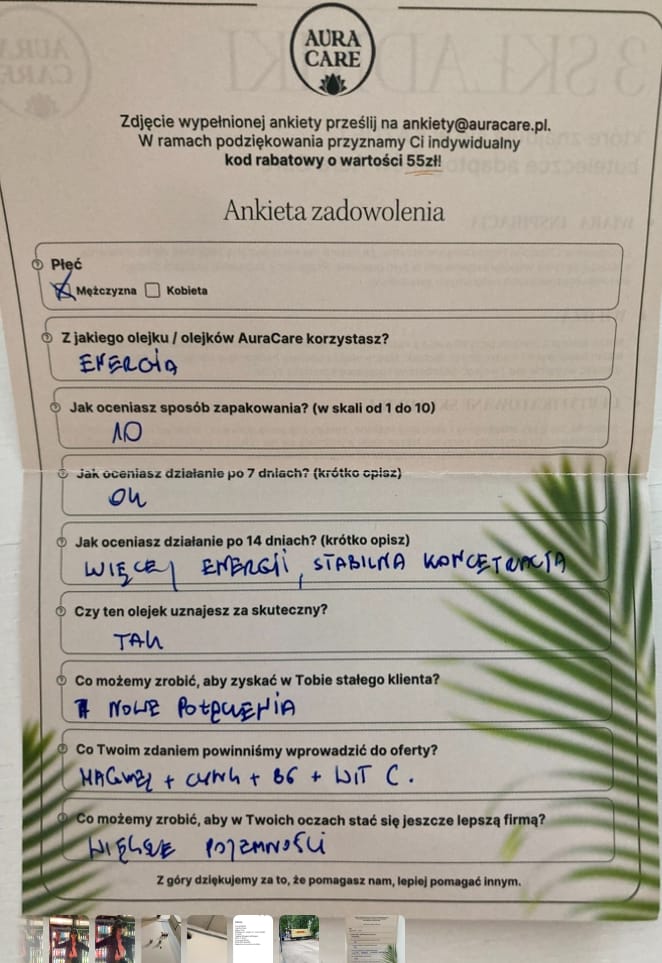 AURA
CARE
Zdjęcie wypełnionej ankiety prześlij na ankiety@auracare.pl.
W ramach podziękowania przyznamy Ci indywidualny
kod rabatowy o wartości 55zł!
Ankieta zadowolenia
Płeć
Mężczyzna Kobieta
Z jakiego olejku / olejków AuraCare korzystasz?
ENERGIA
Jak oceniasz sposób zapakowania? (w skali od 1 do 10)
10
Jak oceniasz działanie po 7 dniach? (krótko opisz)
OK
Jak oceniasz działanie po 14 dniach? (krótko opisz)
WIĘCEJ ENERGII, STABILNA KONCĘTRACJA
Czy ten olejek uznajesz za skuteczny?
TAK
Co możemy zrobić, aby zyskać w Tobie stałego klienta?
NOWE POŁĄCZENIA
Co Twoim zdaniem powinniśmy wprowadzić do oferty?
MAGNEZ + CYNK + B6 + WIT C.
Co możemy zrobić, aby w Twoich oczach stać się jeszcze lepszą firmą?
WIĘKSZE POJEMNOŚCI
Z góry dziękujemy za to, że pomagasz nam, lepiej pomagać innym.